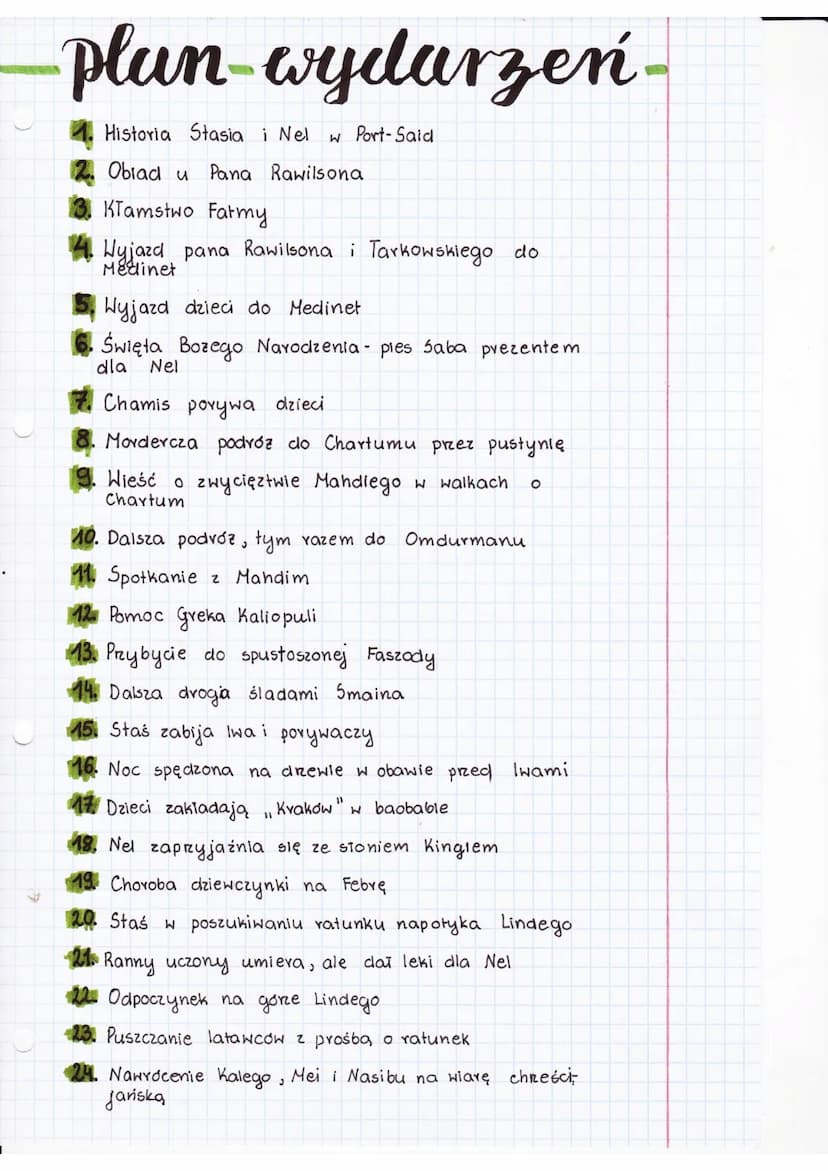 plan wydarzeń
1. Historia Stasia i Nel w Port-Said
2. Obiad u Pana Rawilsona
3. Kłamstwo Fatmy
4. Wyjazd pana Rawilsona i Tarkowskiego do
Medinet
5. Wyjazd dzieci do Medinet
6. Święta Bożego Narodzenia - pies Saba prezentem
dla Nel
7. Chamis porywa dzieci
8. Mordercza podróż do Chartumu przez pustynię
9. Wieść o zwycięztwie Mahdiego w walkach o
Chartum
10. Dalsza podróż, tym razem do Omdurmanu
11. Spotkanie z Mahdim
12. Pomoc Greka Kaliopuli
13. Przybycie do spustoszonej Faszody
14. Dalsza droga śladami Smaina
15. Staś zabija lwa i porywaczy
16. Noc spędzona na drzewie w obawie przed lwami
17. Dzieci zakładają „Kraków" w baobabie
18. Nel zaprzyjaźnia się ze słoniem Kingiem
19. Choroba dziewczynki na Febrę
20. Staś w poszukiwaniu ratunku napotyka Lindego
21. Ranny uczony umiera, ale dał leki dla Nel
22. Odpoczynek na górze Lindego
23. Puszczanie latawców z prośbą o ratunek
24. Nawrócenie Kalego, Mei i Nasibu na wiarę chrześci-
jańską